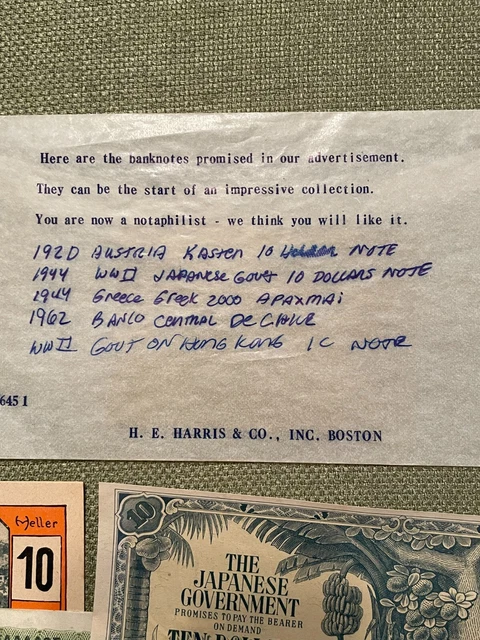 Here are the banknotes promised in our advertisement.
They can be the start of an impressive collection.
You are now a notaphilist - we think you will like it.
1920 AUSTRIA KASTEN 10 NOTE
1944 WWII JAPANESE GOVT 10 DOLLARS NOTE
1944 Greece Greek 2000 APAXMAI
1962 BANCO CENTRAL DE CHILE
WWII GOVT ON HONG KONG 1C NOTE
645 1
H. E. HARRIS & CO., INC. BOSTON
Heller
10
10
THE
JAPANESE
GOVERNMENT
PROMISES TO PAY THE BEARER
ON DEMAND